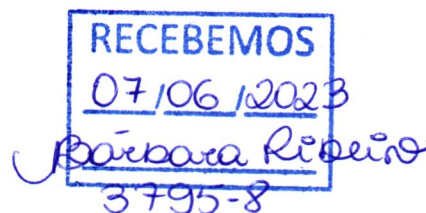 RECEBEMOS
07/06/2023
Bárbara Ribeiro
3795-8